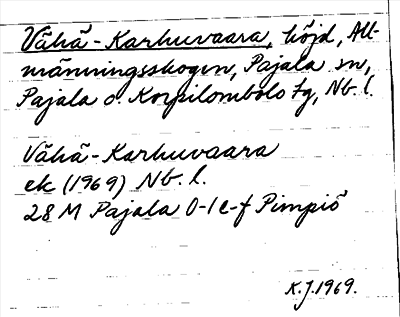 Vähä-Karhuvaara, höjd, All-
männingsskogen, Pajala sn,
Pajala o. Korpilombolo tg, Nb. l.
Vähä-Karhuvaara
ek (1969) Nb. l.
28 M Pajala 0-1 e-f Pimpiö
K.J. 1969.